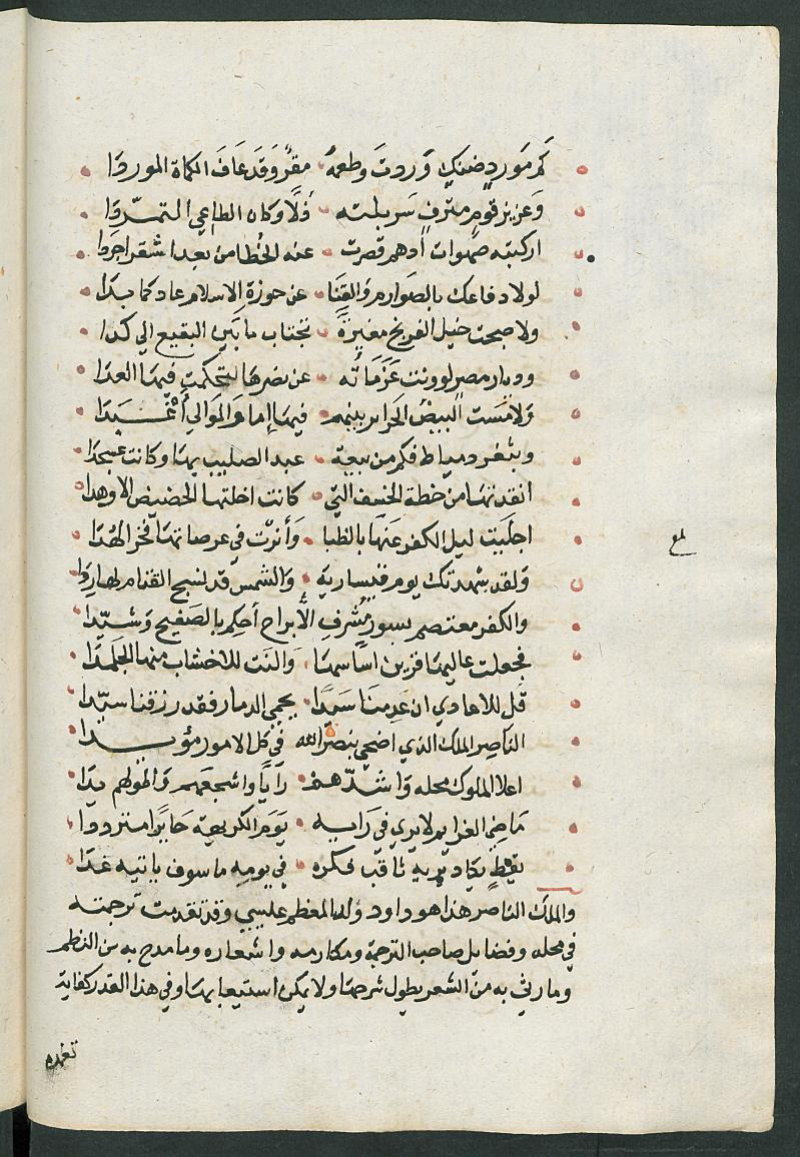 كم مورد ضنك وردت وطعمه • مقرٌ وقد عاف الكماة الموردا
وعزيز قوم مترف سربلته • ذلا وكان الطاغي المتمردا
اركبته صهوات ادهم قصرت • عنه الخطا من بعد اشقر اجردا
لولا دفاعك بالصوارم والقنا • عن حوزة الاسلام عاد كما بدا
ولاصبحت خيل الفرنج مغيرة • تجتاب ما بين البقيع الى كدا
وديار مصر لو ونت عزماته • عن نصرها لتحكمت فيها العدا
ولامست البيض الحراير بينهم • فيها إماء والموالي أعبدا
وبثغر دمياط فكم من بيعة • عبد الصليب بها وكانت مسجدا
انقذتها من خطة الخسف التي • كانت احلتها الحضيض الاوهدا
اجليت ليل الكفر عنها بالظبا • وأنرت في عرصاتها فجر الهدا
ولقد شهدتك يوم قيسارية • والشمس قد نسج القتام لها ردا
والكفر معتصم بسور مشرف الأبراج أحكم بالصفيح وشيدا
فجعلت عاليها قرين اساسها • والنت للاخشاب منها الجلمدا
قل للاعادي ان عدمنا سيدا • يحمي الدمار فقد رزقنا سيدا
الناصر الملك الذي اضحى بنصر الله في كل الامور مؤيدا
اعلا الملوك محله واشدهم • رايا واشجعهم واطولهم يدا
ماضي العزايم لا يرى في رايه • يوم الكريهة حايرا مترددا
يقظ يكاد يريه ثاقب فكره • في يومه ما سوف ياتيه غدا
والملك الناصر هذا هو داود ولد المعظم عيسى وقد تقدمت ترجمته
في محله وفضايل صاحب الترجمة ومكارمه واشعاره وما مدح به من النظم
وما رثي به من الشعر يطول شرحها ولا يمكن استيعابها وفي هذا القدر كفاية
تغمده